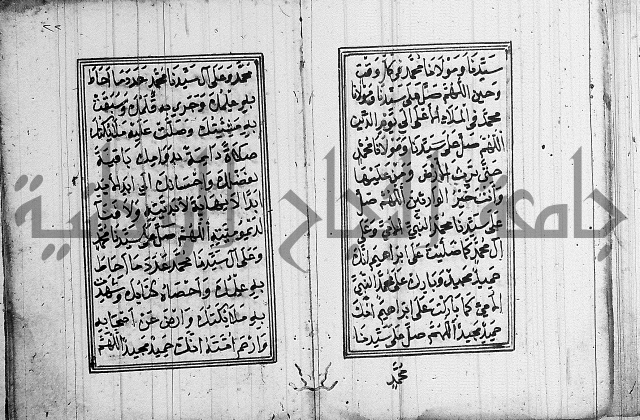 سيدنا ومولانا محمد في كل وقت
وحين اللهم صل على سيدنا ومولانا
محمد في الملاء الاعلى الى يوم الدين
اللهم صل على سيدنا ومولانا محمد
حتى ترث الارض ومن عليها
وانت خير الوارثين اللهم صل
على سيدنا محمد النبي الامي وعلى
ال محمد كما صليت على ابراهيم انك
حميد مجيد وبارك على محمد النبي
الامي كما باركت على ابراهيم انك
حميد مجيد اللهم صل على سيدنا
محمد
محمد وعلى ال سيدنا محمد عدد ما احاط
به علمك وجرى به قلمك وسبقت
به مشيئتك وصلت عليه ملائكتك
صلاة دايمة بدوامك باقية
بفضلك واحسانك الى ابد الابد
ابدا لا نهاية لابديته ولا فناء
لديموميته اللهم صل على سيدنا محمد
وعلى ال سيدنا محمد عدد ما احاط
به علمك واحصاه كتابك وشهدت
به ملائكتك وارض عن اصحابه
وارحم امته انك حميد مجيد اللهم
جامعة النجاح الوطنية